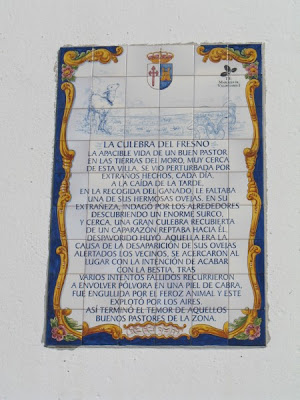 LA CULEBRA DEL FRESNO
LA APACIBLE VIDA DE UN BUEN PASTOR
EN LAS TIERRAS DEL MORO, MUY CERCA
DE ESTA VILLA, SE VIO PERTURBADA POR
EXTRAÑOS HECHOS, CADA DÍA,
A LA CAÍDA DE LA TARDE,
EN LA RECOGIDA DEL GANADO, LE FALTABA
UNA DE SUS HERMOSAS OVEJAS. EN SU
EXTRAÑEZA, INDAGÓ POR LOS ALREDEDORES
DESCUBRIENDO UN ENORME SURCO,
Y CERCA, UNA GRAN CULEBRA RECUBIERTA
DE UN CAPARAZÓN REPTABA HACIA ÉL.
DESPAVORIDO HUYÓ. AQUELLA ERA LA
CAUSA DE LA DESAPARICIÓN DE SUS OVEJAS
ALERTADOS LOS VECINOS, SE ACERCARON AL
LUGAR CON LA INTENCIÓN DE ACABAR
CON LA BESTIA, TRAS
VARIOS INTENTOS FALLIDOS RECURRIERON
A ENVOLVER PÓLVORA EN UNA PIEL DE CABRA,
FUE ENGULLIDA POR EL FEROZ ANIMAL Y ESTE
EXPLOTÓ POR LOS AIRES.
ASÍ TERMINÓ EL TEMOR DE AQUELLOS
BUENOS PASTORES DE LA ZONA.